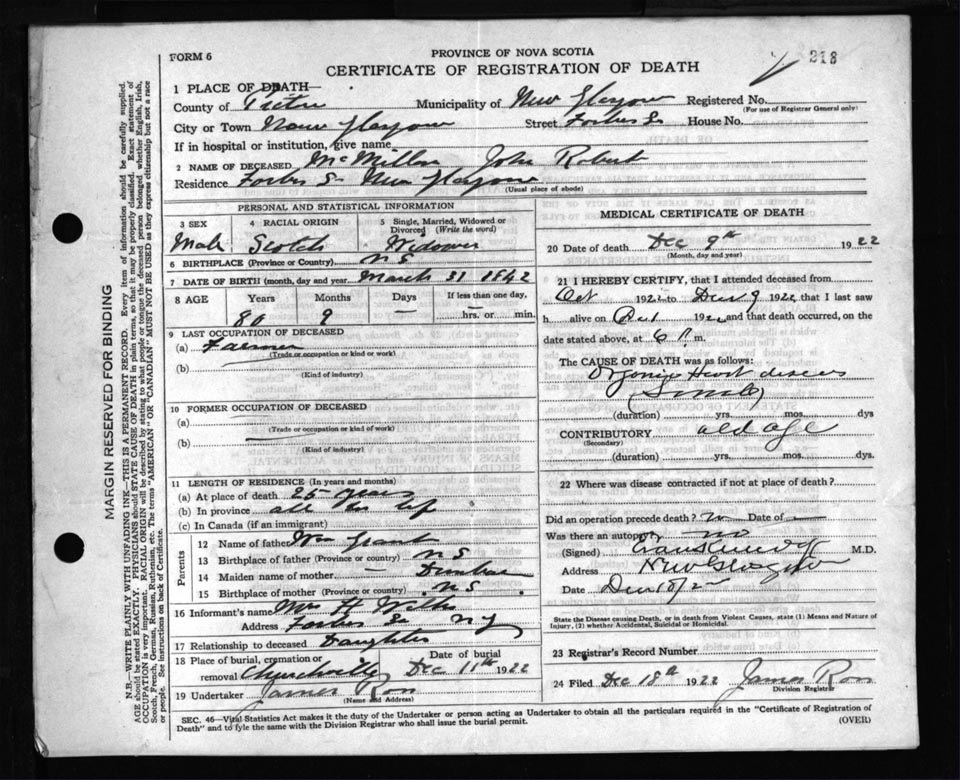 FORM 6
PROVINCE OF NOVA SCOTIA
CERTIFICATE OF REGISTRATION OF DEATH
218
1 PLACE OF DEATH—
County of Pictou Municipality of New Glasgow Registered No.
(For use of Registrar General only)
City or Town New Glasgow Street Forbes St House No.
If in hospital or institution, give name
2 NAME OF DECEASED McMillan John Robert
Residence Forbes St New Glasgow
(Usual place of abode)
PERSONAL AND STATISTICAL INFORMATION
3 SEX 4 RACIAL ORIGIN 5 Single, Married, Widowed or Divorced (Write the word)
Male Scotch Widower
6 BIRTHPLACE (Province or Country) N S
7 DATE OF BIRTH (month, day and year) March 31 1842
8 AGE Years Months Days If less than one day,
80 9 — hrs. or min.
9 LAST OCCUPATION OF DECEASED
(a) Farmer
(Trade or occupation or kind or work)
(b)
(Kind of industry)
10 FORMER OCCUPATION OF DECEASED
(a)
(Trade or occupation or kind of work)
(b)
(Kind of industry)
11 LENGTH OF RESIDENCE (In years and months)
(a) At place of death 25 years
(b) In province all his life
(c) In Canada (if an immigrant)
Parents
12 Name of father Wm Grant
13 Birthplace of father (Province or country) N S
14 Maiden name of mother — Dunbar
15 Birthplace of mother (Province or country) N S.
16 Informant's name Mrs H
Address Forbes St N G
17 Relationship to deceased Daughter
18 Place of burial, cremation or removal Churchville Date of burial Dec 11th 1922
19 Undertaker James Ross
(Name and Address)
MEDICAL CERTIFICATE OF DEATH
20 Date of death Dec 9th 1922
(Month, day and year)
21 I HEREBY CERTIFY, that I attended deceased from
Oct 1922 to Dec 9 1922 that I last saw
h alive on 1922 and that death occurred, on the
date stated above, at 6 P m.
The CAUSE OF DEATH was as follows:
Organic Heart disease
(Senile)
(duration) yrs. mos. dys
CONTRIBUTORY old age
(Secondary)
(duration) yrs. mos. dys.
22 Where was disease contracted if not at place of death?
Did an operation precede death? no Date of —
Was there an autopsy? no
(Signed) M.D.
Address New Glasgow
Date Dec 10/22
State the Disease causing Death, or in death from Violent Causes, state (1) Means and Nature of Injury, (2) whether Accidental, Suicidal or Homicidal.
23 Registrar's Record Number
24 Filed Dec 18th 1922 James Ross
Division Registrar
SEC. 46—Vital Statistics Act makes it the duty of the Undertaker or person acting as Undertaker to obtain all the particulars required in the "Certificate of Registration of Death" and to fyle the same with the Division Registrar who shall issue the burial permit.
(OVER)
MARGIN RESERVED FOR BINDING
N.B.—WRITE PLAINLY WITH UNFADING INK—THIS IS A PERMANENT RECORD. Every item of information should be carefully supplied.
AGE should be stated EXACTLY. PHYSICIANS should STATE CAUSE OF DEATH in plain terms, so that it may be properly classified. Exact statement of
OCCUPATION is very important. RACIAL ORIGIN will be described by stating to what people or tongue the deceased person belonged, whether English, Irish,
Scotch, French, German, Russian, Ruthenian, etc. The terms "AMERICAN" OR "CANADIAN" MUST NOT BE USED as they express citizenship but not a race
or people. See instructions on back of Certificate.